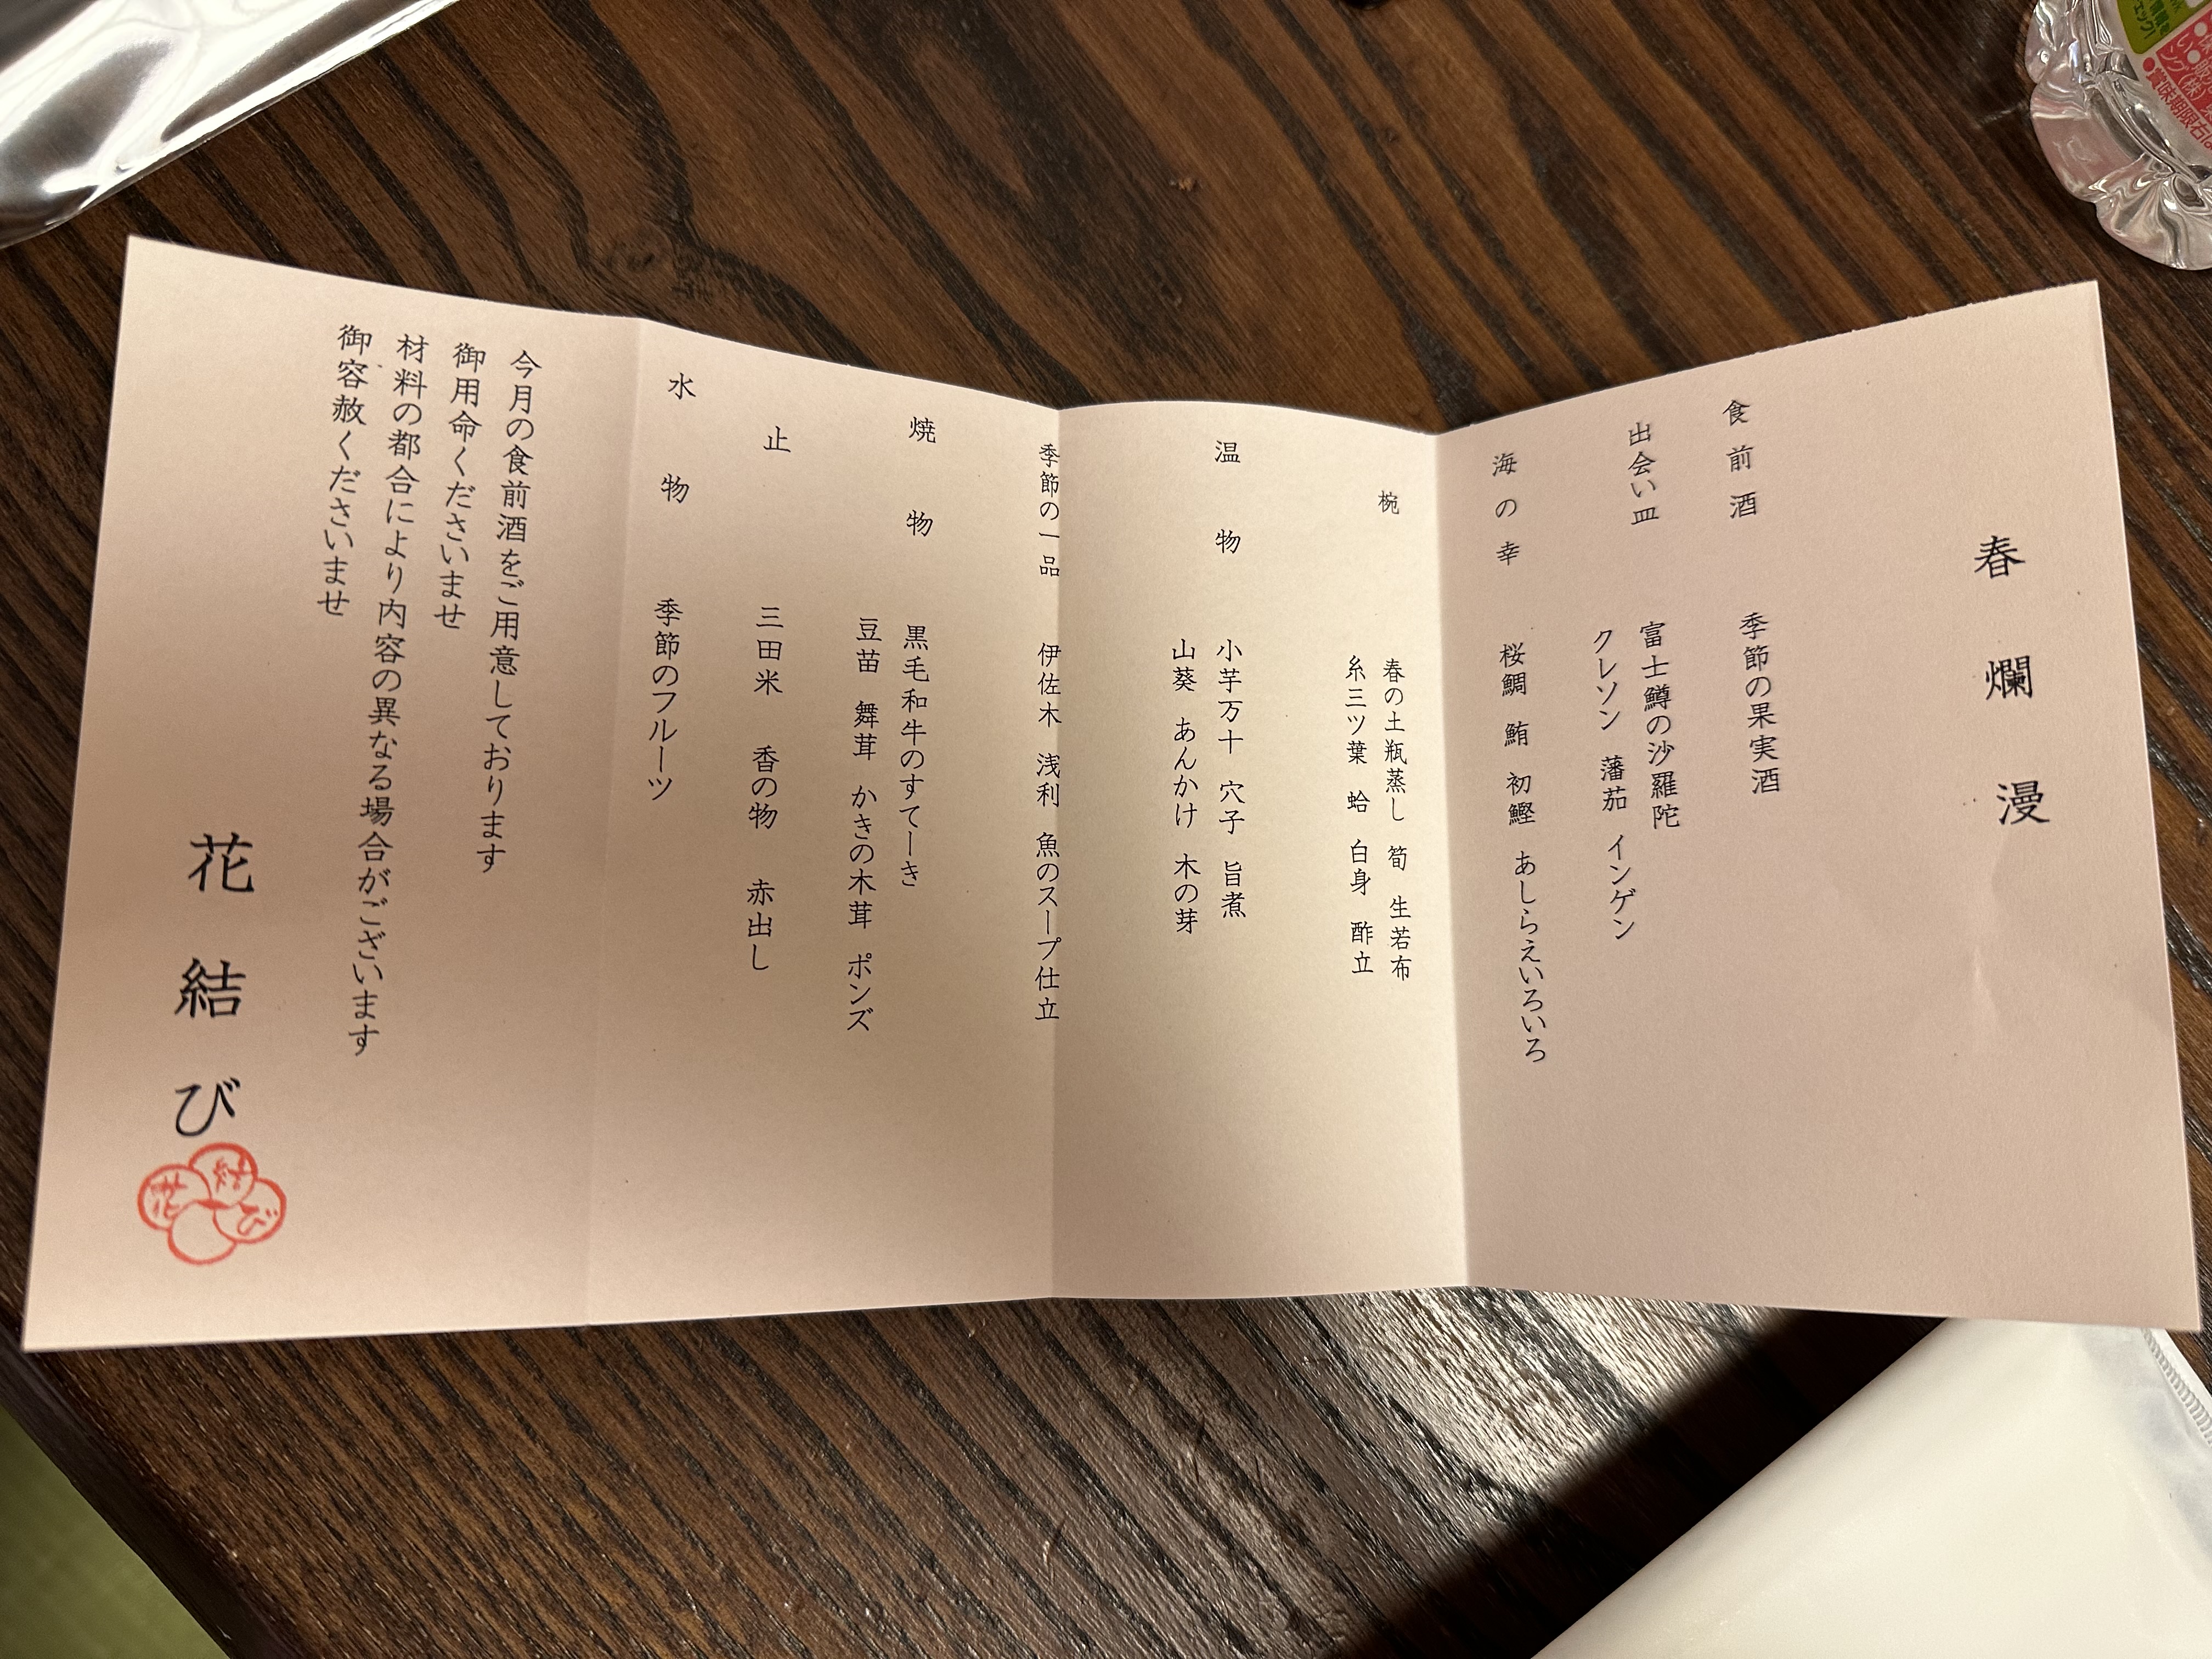 春爛漫
食前酒 季節の果実酒
出会い皿 富士鱒の沙羅陀
クレソン 藩茄 インゲン
海の幸 桜鯛 鮪 初鰹 あしらえいろいろ
椀 春の土瓶蒸し 筍 生若布
糸三ツ葉 蛤 白身 酢立
温物 小芋万十 穴子 旨煮
山葵 あんかけ 木の芽
季節の一品 伊佐木 浅利 魚のスープ仕立
焼物 黒毛和牛のすてーき
豆苗 舞茸 かきの木茸 ポンズ
止 三田米 香の物 赤出し
水物 季節のフルーツ
今月の食前酒をご用意しております
御用命くださいませ
材料の都合により内容の異なる場合がございます
御容赦くださいませ
花結び
花結び
賞味期限右